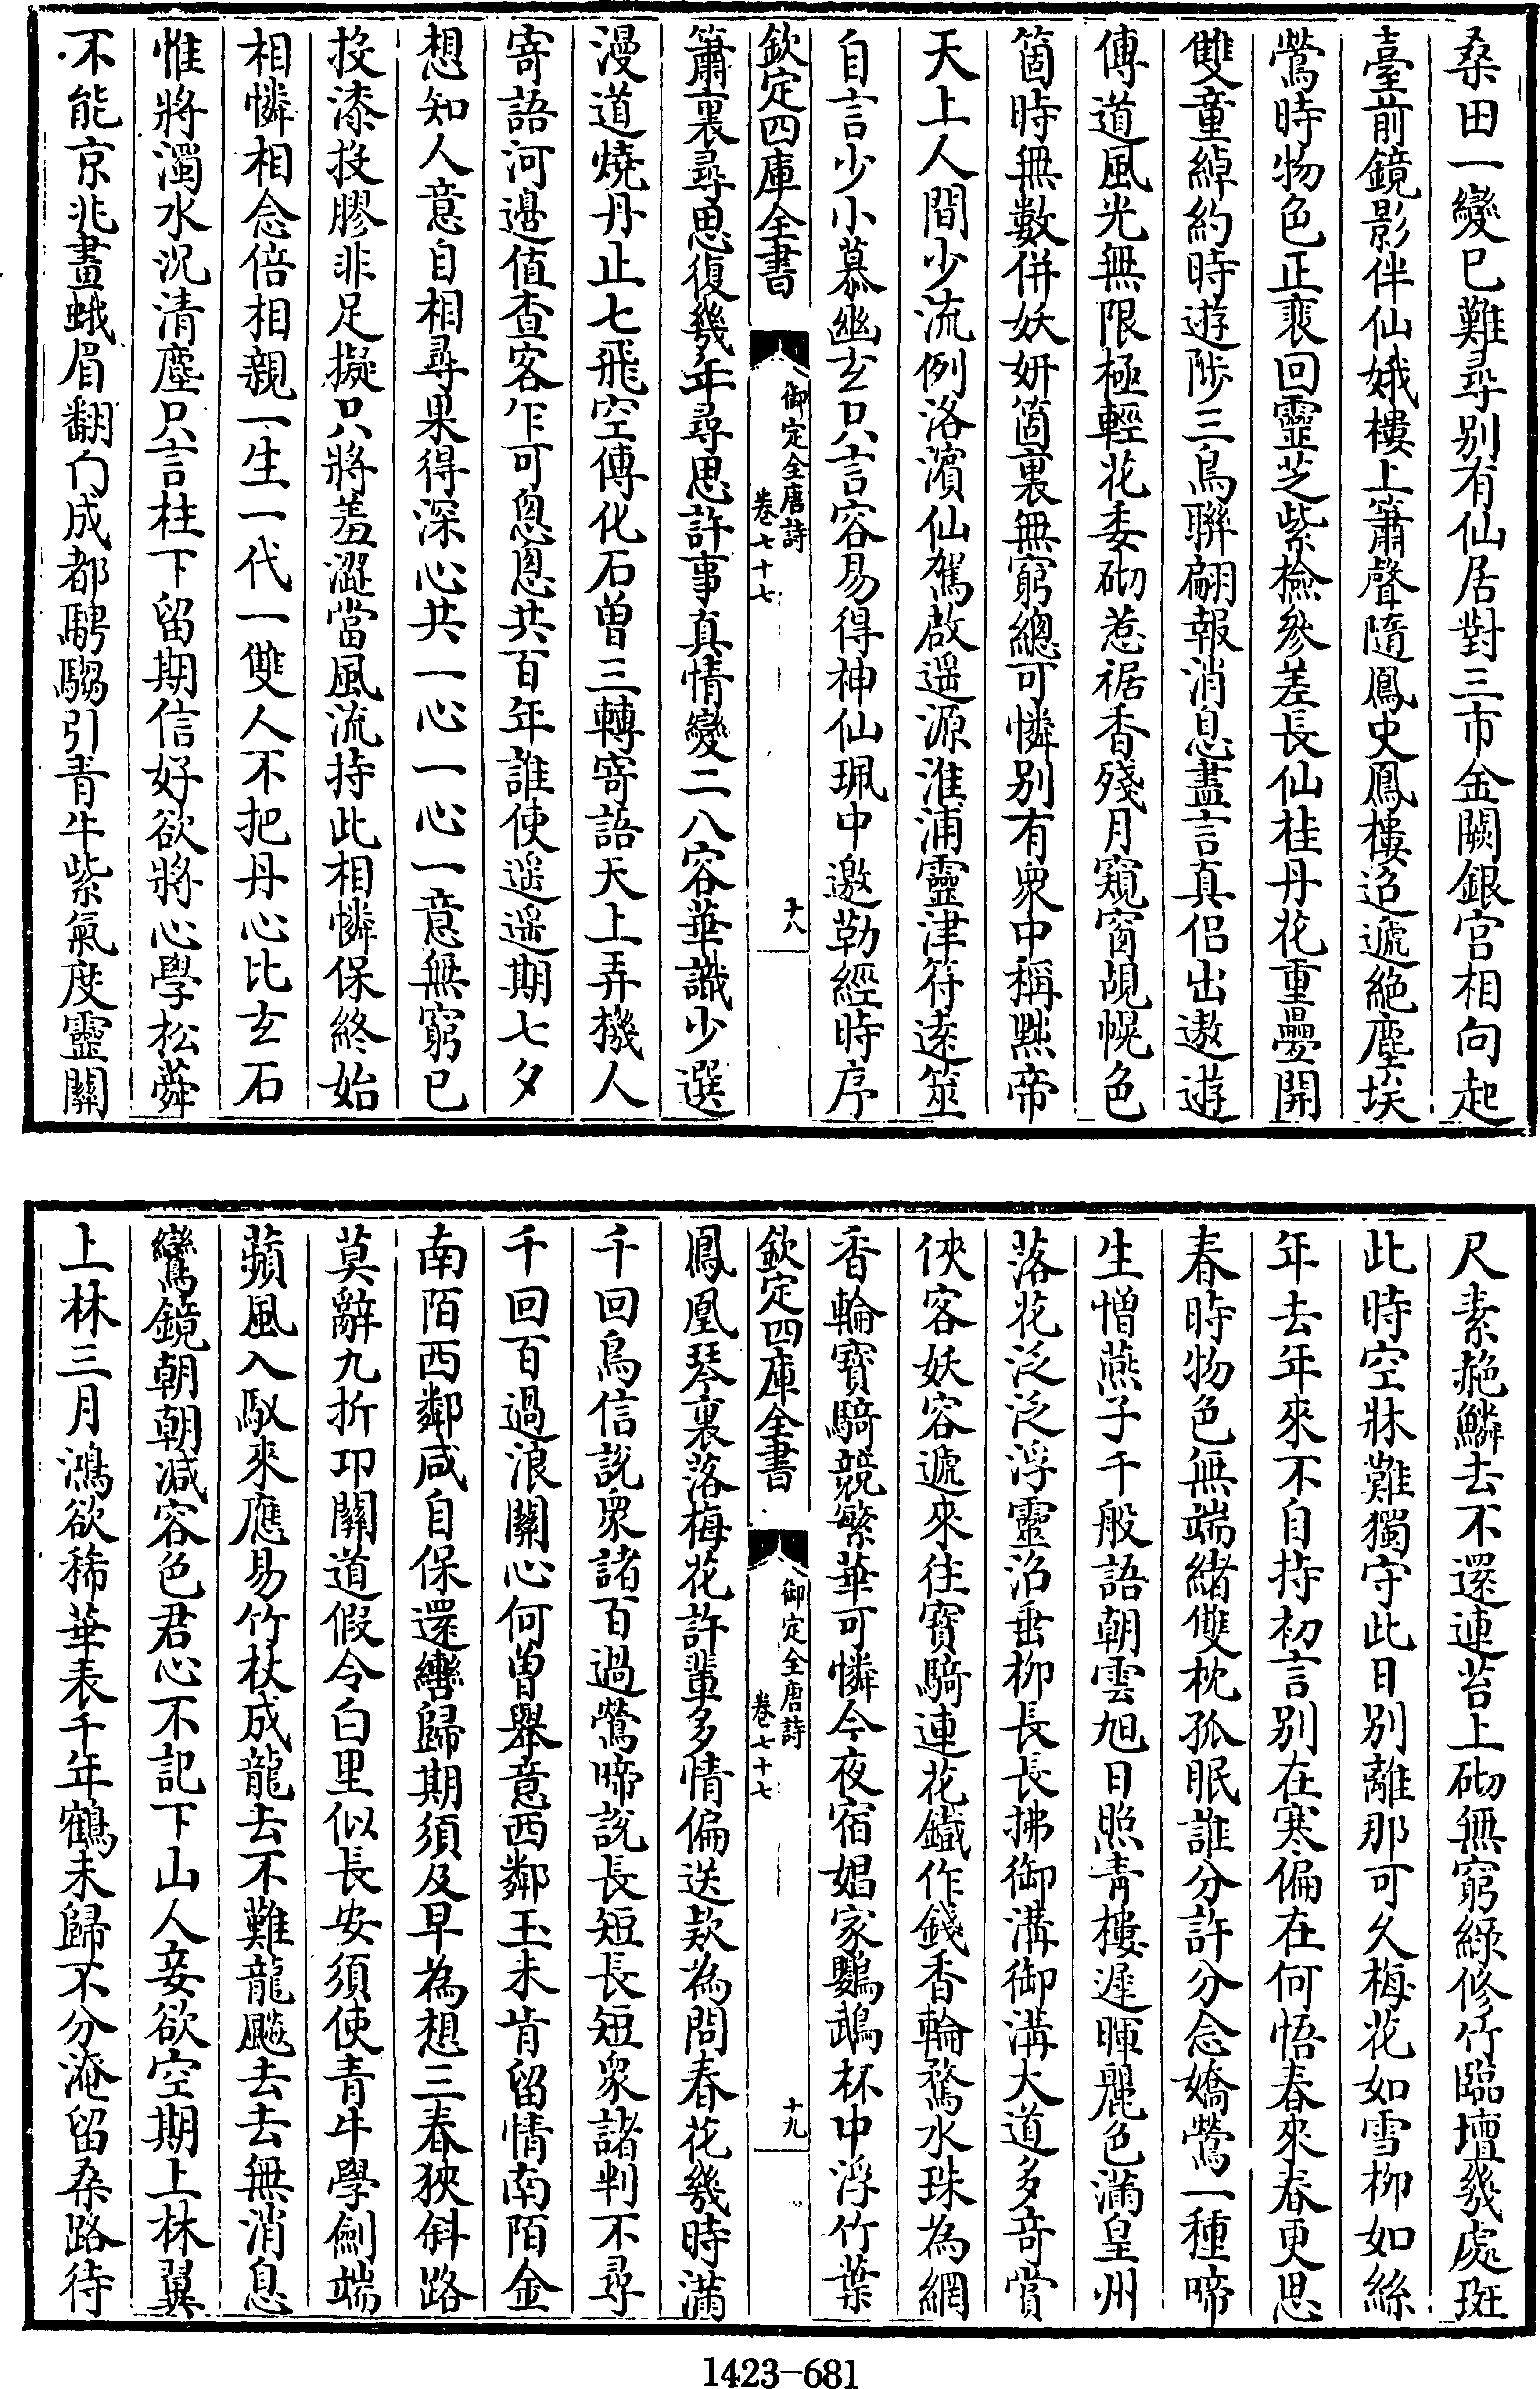 桑田一變已難尋别有仙居對三市金闕銀宫相向起
臺前鏡影伴仙娥樓上簫聲隨鳳史鳳樓迢遞絶塵埃
鶯時物色正裴回靈芝紫檢參差長仙桂丹花重疊開
雙童綽約時遊陟三鳥聯翩報消息盡言真侣出遨遊
傳道風光無限極輕花委砌惹裾香殘月窺窗覘幌色
箇時無數併妖妍箇裏無窮總可憐别有衆中稱黠帝
天上人間少流例洛濱仙駕啟遥源淮浦靈津符遠筮
自言少小慕幽玄只言容易得神仙珮中邀勒經時序
欽定四庫全書
御定全唐詩
卷七十七
十八
簫裏尋思復幾年尋思許事真情變二八容華識少選
漫道燒丹止七飛空傳化石曽三轉寄語天上弄機人
寄語河邉值查客乍可怱怱共百年誰使遥遥期七夕
想知人意自相尋果得深心共一心一心一意無窮已
投漆投膠非足擬只將羞澀當風流持此相憐保終始
相憐相念倍相親一生一代一雙人不把丹心比玄石
惟將濁水況清塵只言柱下留期信好欲將心學松蕣
不能京兆畫蛾眉翻向成都騁騶引青牛紫氣度靈關
尺素赩鱗去不還連苔上砌無窮緑修竹臨壇幾處斑
此時空牀難獨守此日别離那可久梅花如雪柳如絲
年去年來不自持初言别在寒偏在何悟春來春更思
春時物色無端緒雙枕孤眠誰分許分念嬌鶯一種啼
生憎燕子千般語朝雲旭日照青樓遲暉麗色滿皇州
落花泛泛浮靈沼垂柳長長拂御溝御溝大道多奇賞
俠客妖容遞來往寳騎連花鐵作錢香輪鶩水珠為網
香輪寳騎競繁華可憐今夜宿娼家鸚鵡杯中浮竹葉
欽定四庫全書
御定全唐詩
卷七十七
十九
鳳凰琴裏落梅花許輩多情偏送款為問春花幾時滿
千回鳥信説衆諸百過鶯啼説長短長短衆諸判不尋
千回百過浪關心何曽舉意西鄰玉未肯留情南陌金
南陌西鄰咸自保還轡歸期須及早為想三春狹斜路
莫辭九折卭關道假令白里似長安須使青牛學劍端
蘋風入馭來應易竹杖成龍去不難龍飈去去無消息
鸞鏡朝朝減容色君心不記下山人妾欲空期上林翼
上林三月鴻欲稀華表千年鶴未歸不分淹留桑路待
1423-681